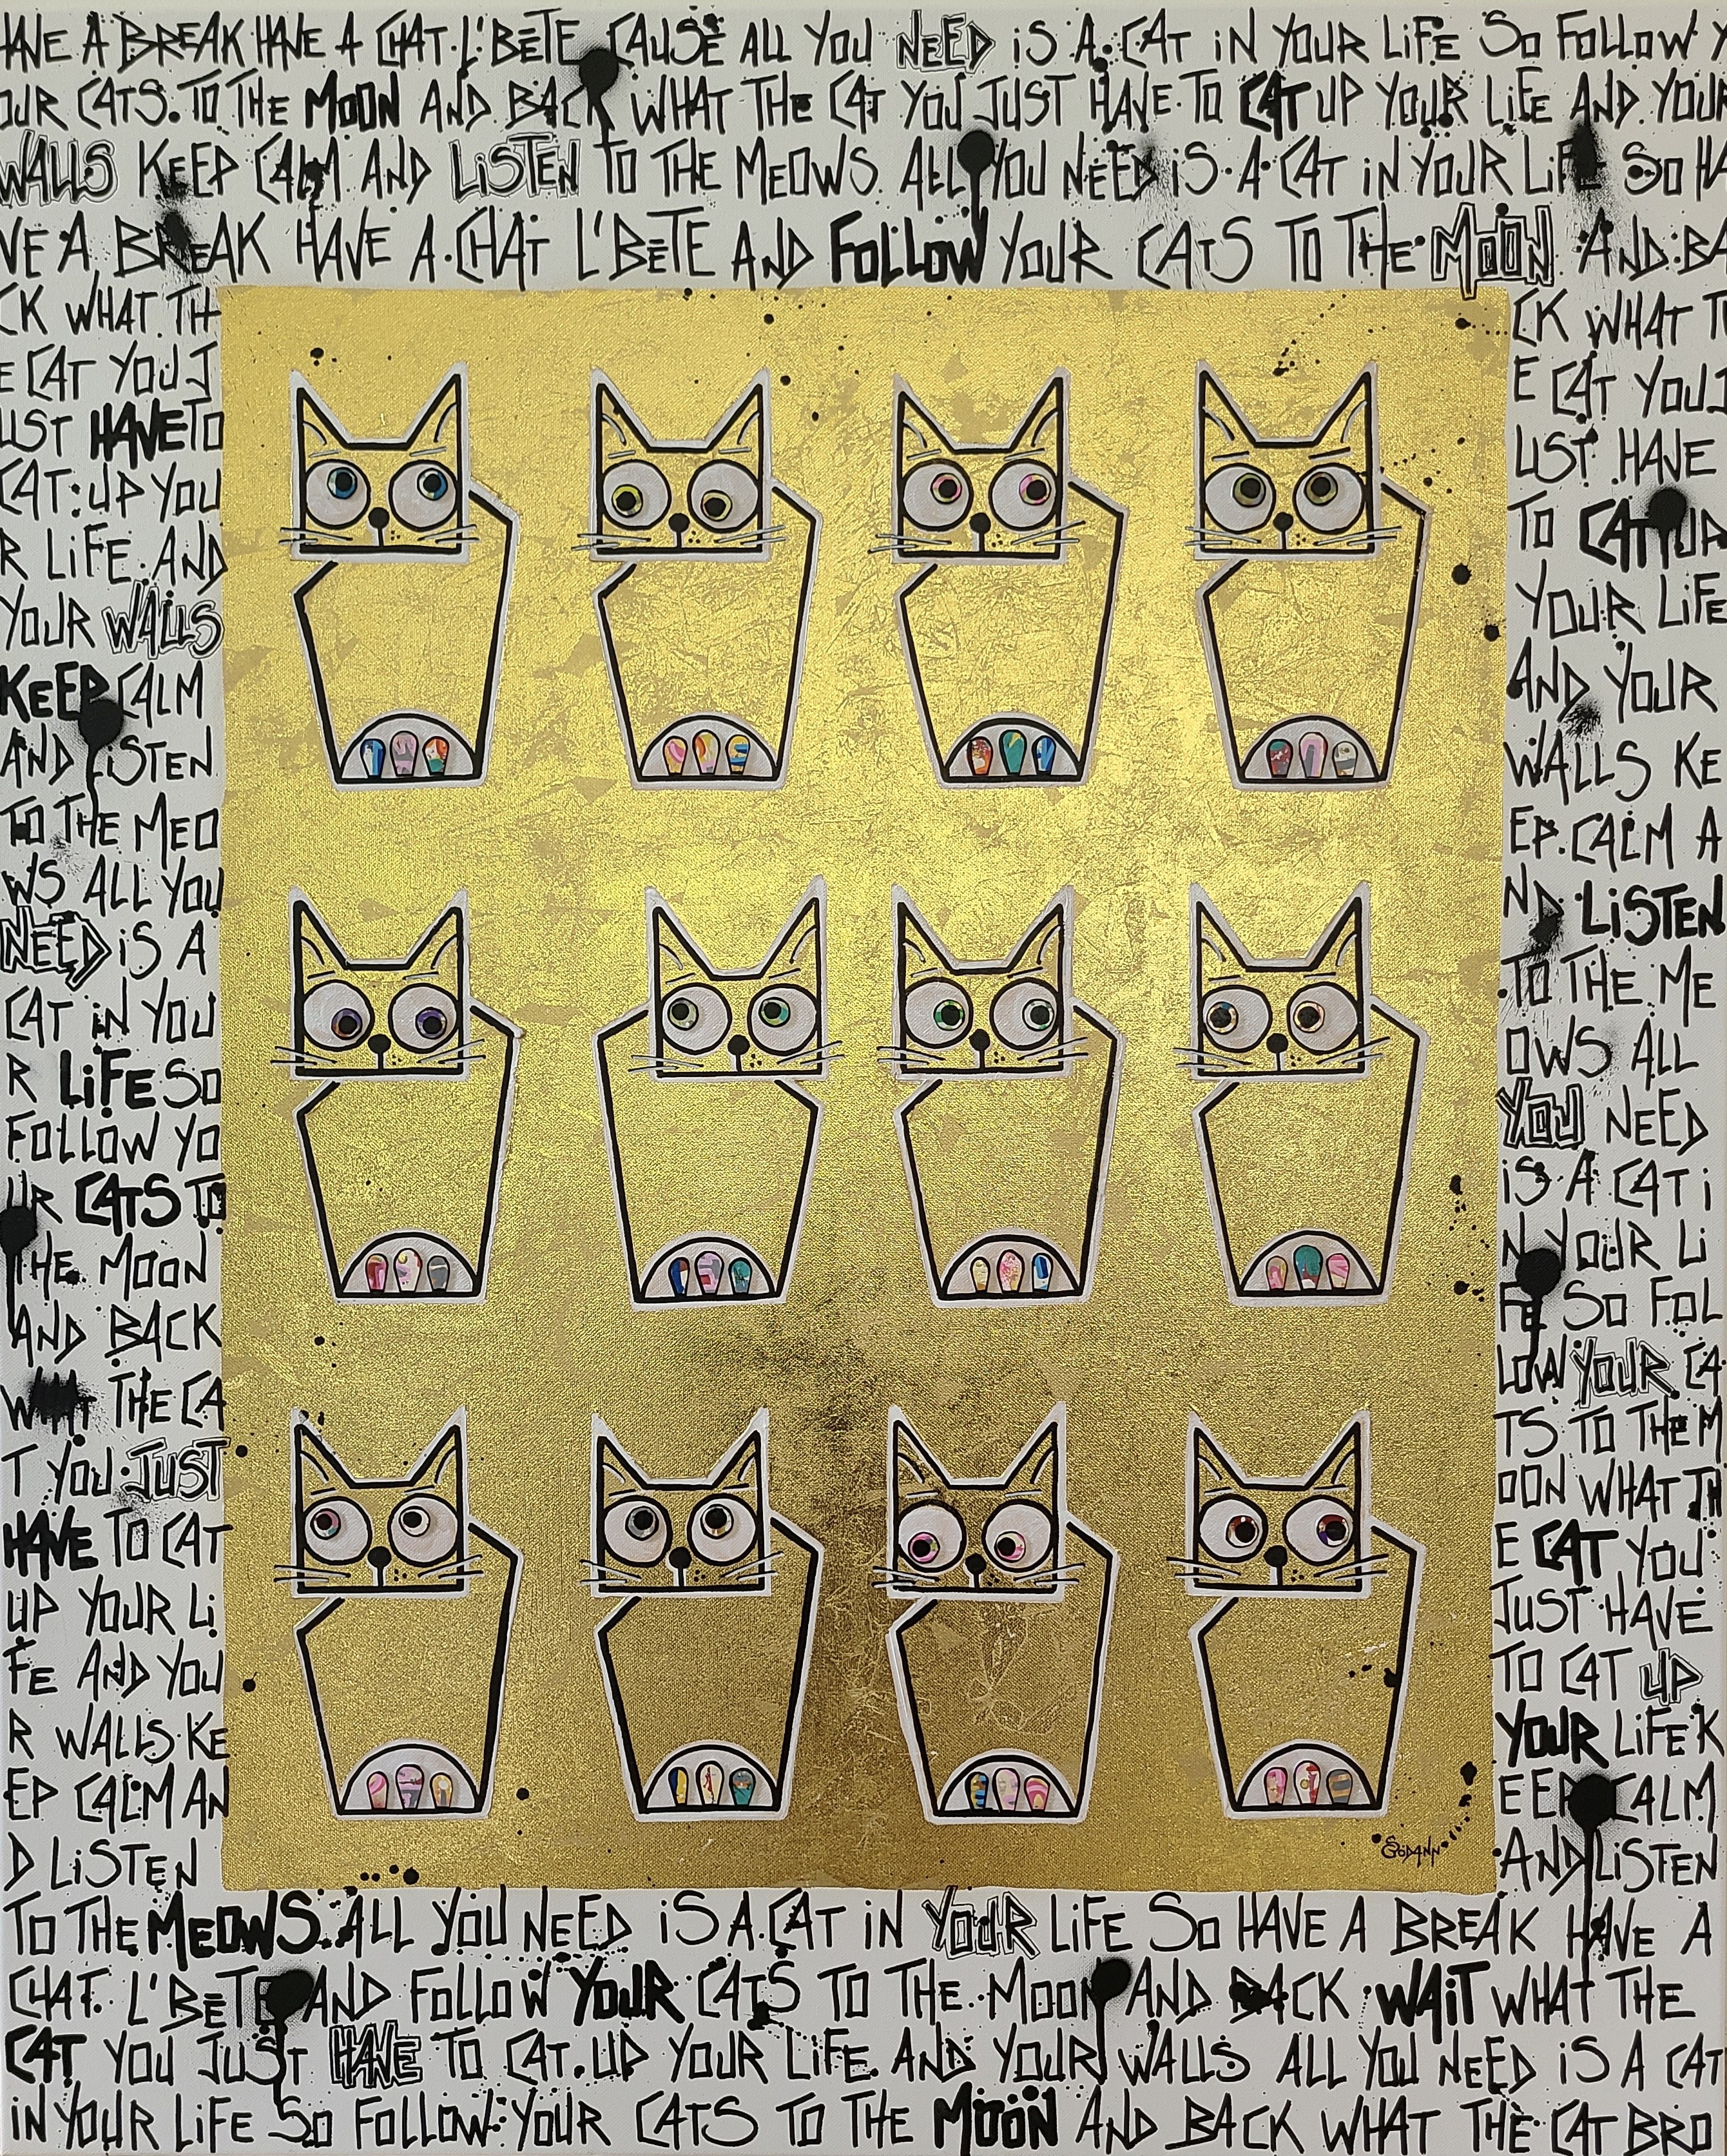 HAVE A BREAK HAVE A CHAT L'BĒTE CAUSE ALL YOU NEED iS A CAT iN YOUR LiFE SO FOLLOW Y
OUR CATS. TO THE MOON AND BACK WHAT THE CAT YOU JUST HAVE TO CAT UP YOUR LiFE AND YOUR
WALLS KEEP CALM AND LiSTEN TO THE MEOWS. ALL YOU NEED iS A CAT iN YOUR LiFE SO HA
VE A BREAK HAVE A CHAT L'BĒTE AND FOLLOW YOUR CATS TO THE MOON AND BA
CK WHAT TH
E CAT YOU J
UST HAVE TO
CAT UP YOU
R LiFE AND
YOUR WALLS
KEEP CALM
AND LiSTEN
TO THE MEO
WS ALL YOU
NEED iS A
CAT iN YOU
R LiFE SO
FOLLOW YO
UR CATS TO
THE MOON
AND BACK
WHAT THE CA
T YOU JUST
HAVE TO CAT
UP YOUR Li
FE AND YOU
R WALLS KE
EP CALM AN
D LiSTEN
CK WHAT TH
E CAT YOU J
UST HAVE
TO CAT UP
YOUR LiFE
AND YOUR
WALLS KE
EP CALM A
ND LiSTEN
TO THE ME
OWS ALL
YOU NEED
iS A CAT i
N YOUR Li
FE SO FOL
LOW YOUR CA
TS TO THE M
OON WHAT TH
E CAT YOU
JUST HAVE
TO CAT UP
YOUR LiFE K
EEP CALM
AND LiSTEN
SODANN
TO THE MEOWS. ALL YOU NEED iS A CAT iN YOUR LiFE SO HAVE A BREAK HAVE A
CHAT L'BĒTE AND FOLLOW YOUR CATS TO THE MOON AND BACK WAiT WHAT THE
CAT YOU JUST HAVE TO CAT UP YOUR LiFE AND YOUR WALLS ALL YOU NEED iS A CAT
iN YOUR LiFE SO FOLLOW YOUR CATS TO THE MOON AND BACK WHAT THE CAT BRO